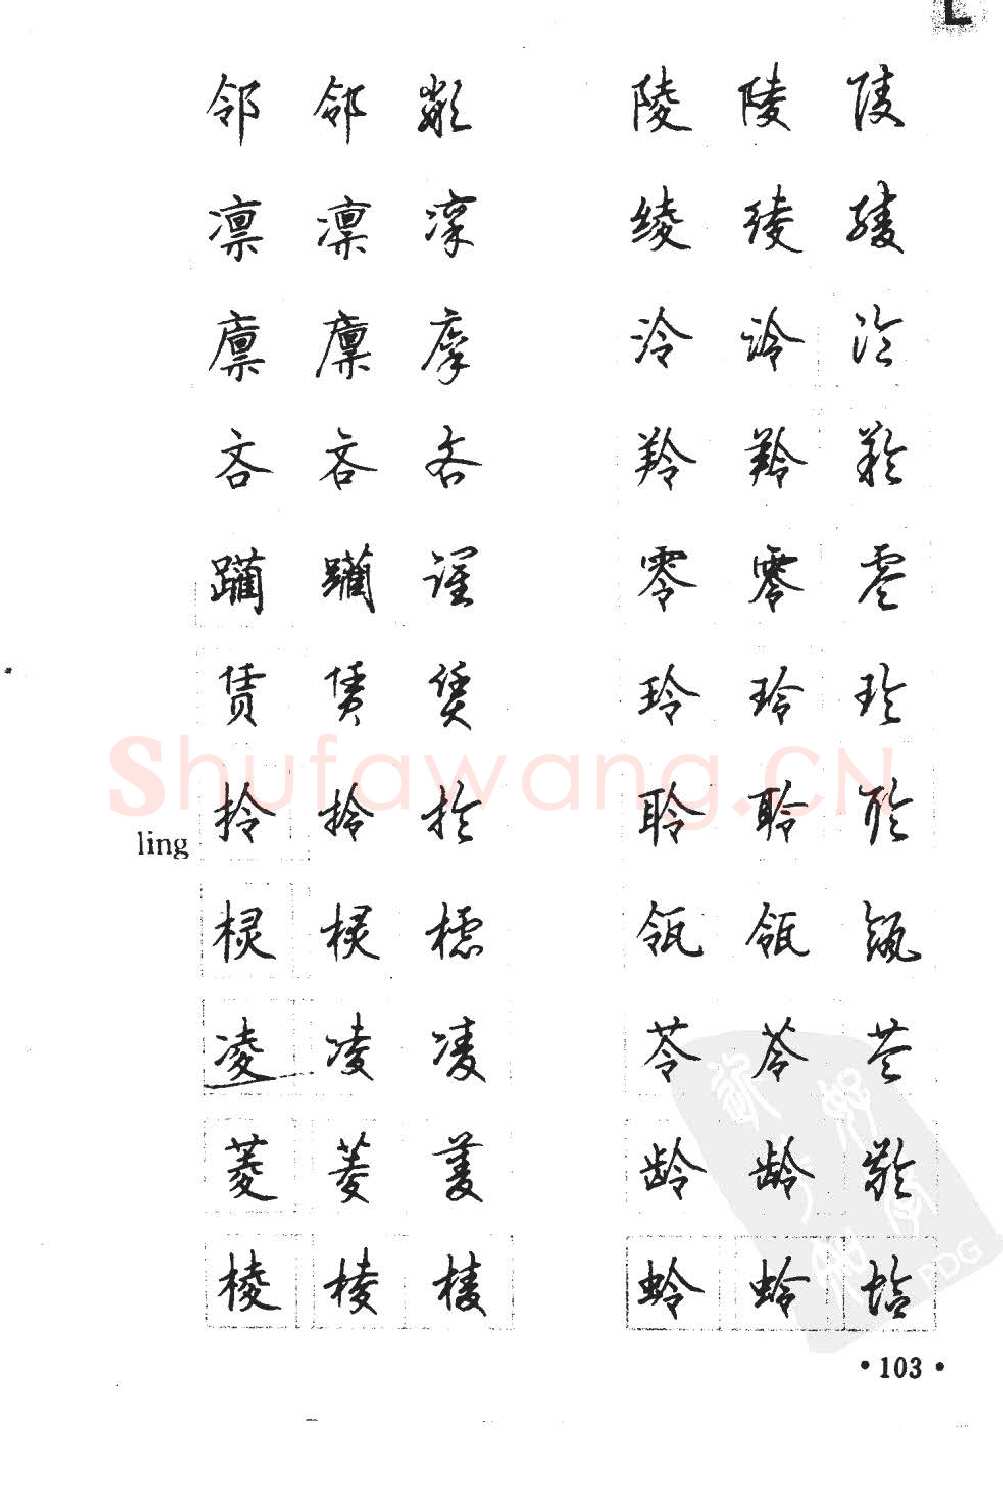 L
邻 邻 邻
凛 凛 凛
廪 廪 廪
吝 吝 吝
躏 躏 躏
赁 赁 赁
ling 拎 拎 拎
棂 棂 棂
凌 凌 凌
菱 菱 菱
棱 棱 棱
陵 陵 陵
绫 绫 绫
泠 泠 泠
羚 羚 羚
零 零 零
玲 玲 玲
聆 聆 聆
瓴 瓴 瓴
苓 苓 苓
龄 龄 龄
蛉 蛉 蛉
Shufawang.CN
PDG
·103·